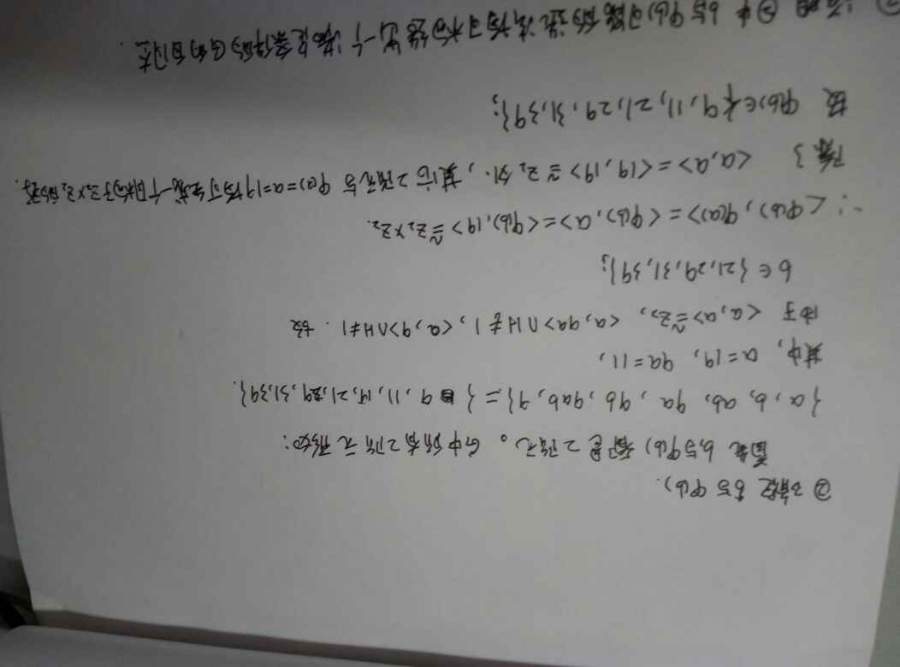 ② 确定 b与φ(b).
首先 b与φ(b) 都是2阶元。G中所有2阶元形如:
{a, b, ab, 9a, 9b, 9ab, 9} = { 9, 11, 19, 21, 29, 31, 39}.
其中, a=19, 9a=11,
由于 <a,a>≅Z₂, <a,9a>∩H≠1, <a,9>∩H≠1. 故
b∈{21,29,31,39};
∵ <φ(b), φ(a)> = <φ(b), a> = <φ(b), 19> ≅ Z₂×Z₂.
除了 <a,a> = <19,19> ≅ Z₂ 外, 其它2阶元与 φ(a)=a=19 均可生成一个同构于Z₂×Z₂的群.
故 φ(b)∈{9,11,21,29,31,39};
③ ② 中 b与φ(b) 一个满足条件的G的自同